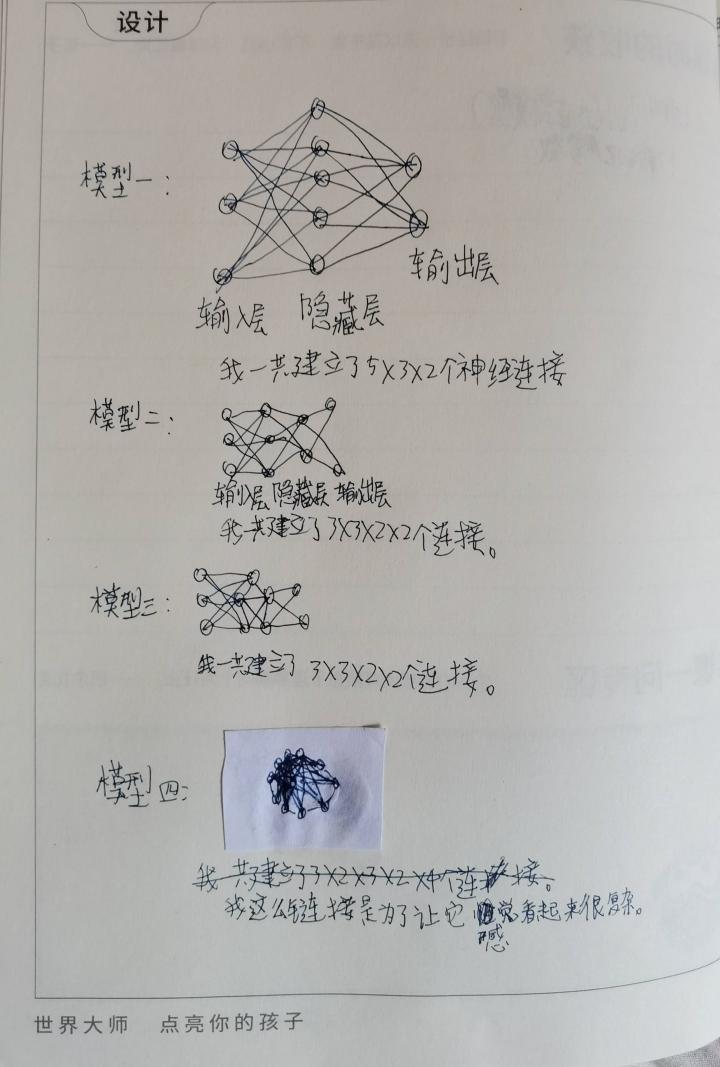 设计
模型一：
输出层
输入层 隐藏层
我一共建立了5×3×2个神经连接
模型二：
输入层 隐藏层 输出层
我一共建立了3×3×2×2个连接。
模型三：
我一共建立了3×3×2×2个连接。
模型四：
我一共建立了3×2×3×2×4个连接。
我这么链接是为了让它感觉看起来很复杂。
世界大师 点亮你的孩子